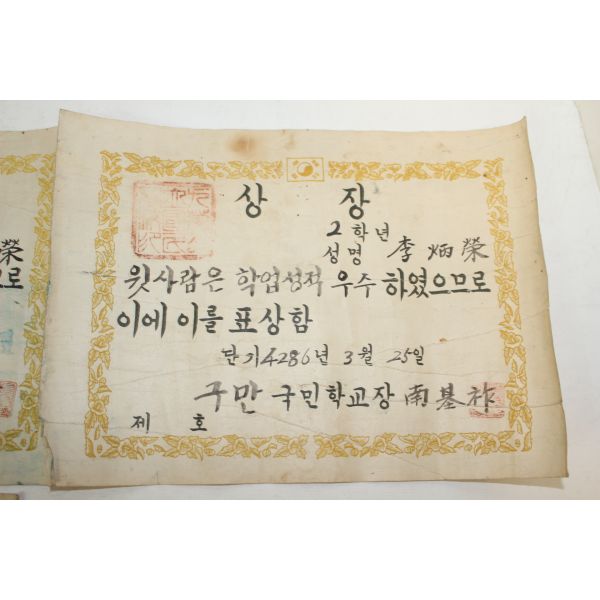 상 장
2학년
성명 李炳榮
윗사람은 학업성적 우수 하였으므로
이에 이를 표상함
단기4286년 3월 25일
구만 국민학교장 南基祚
제 호
榮
으로